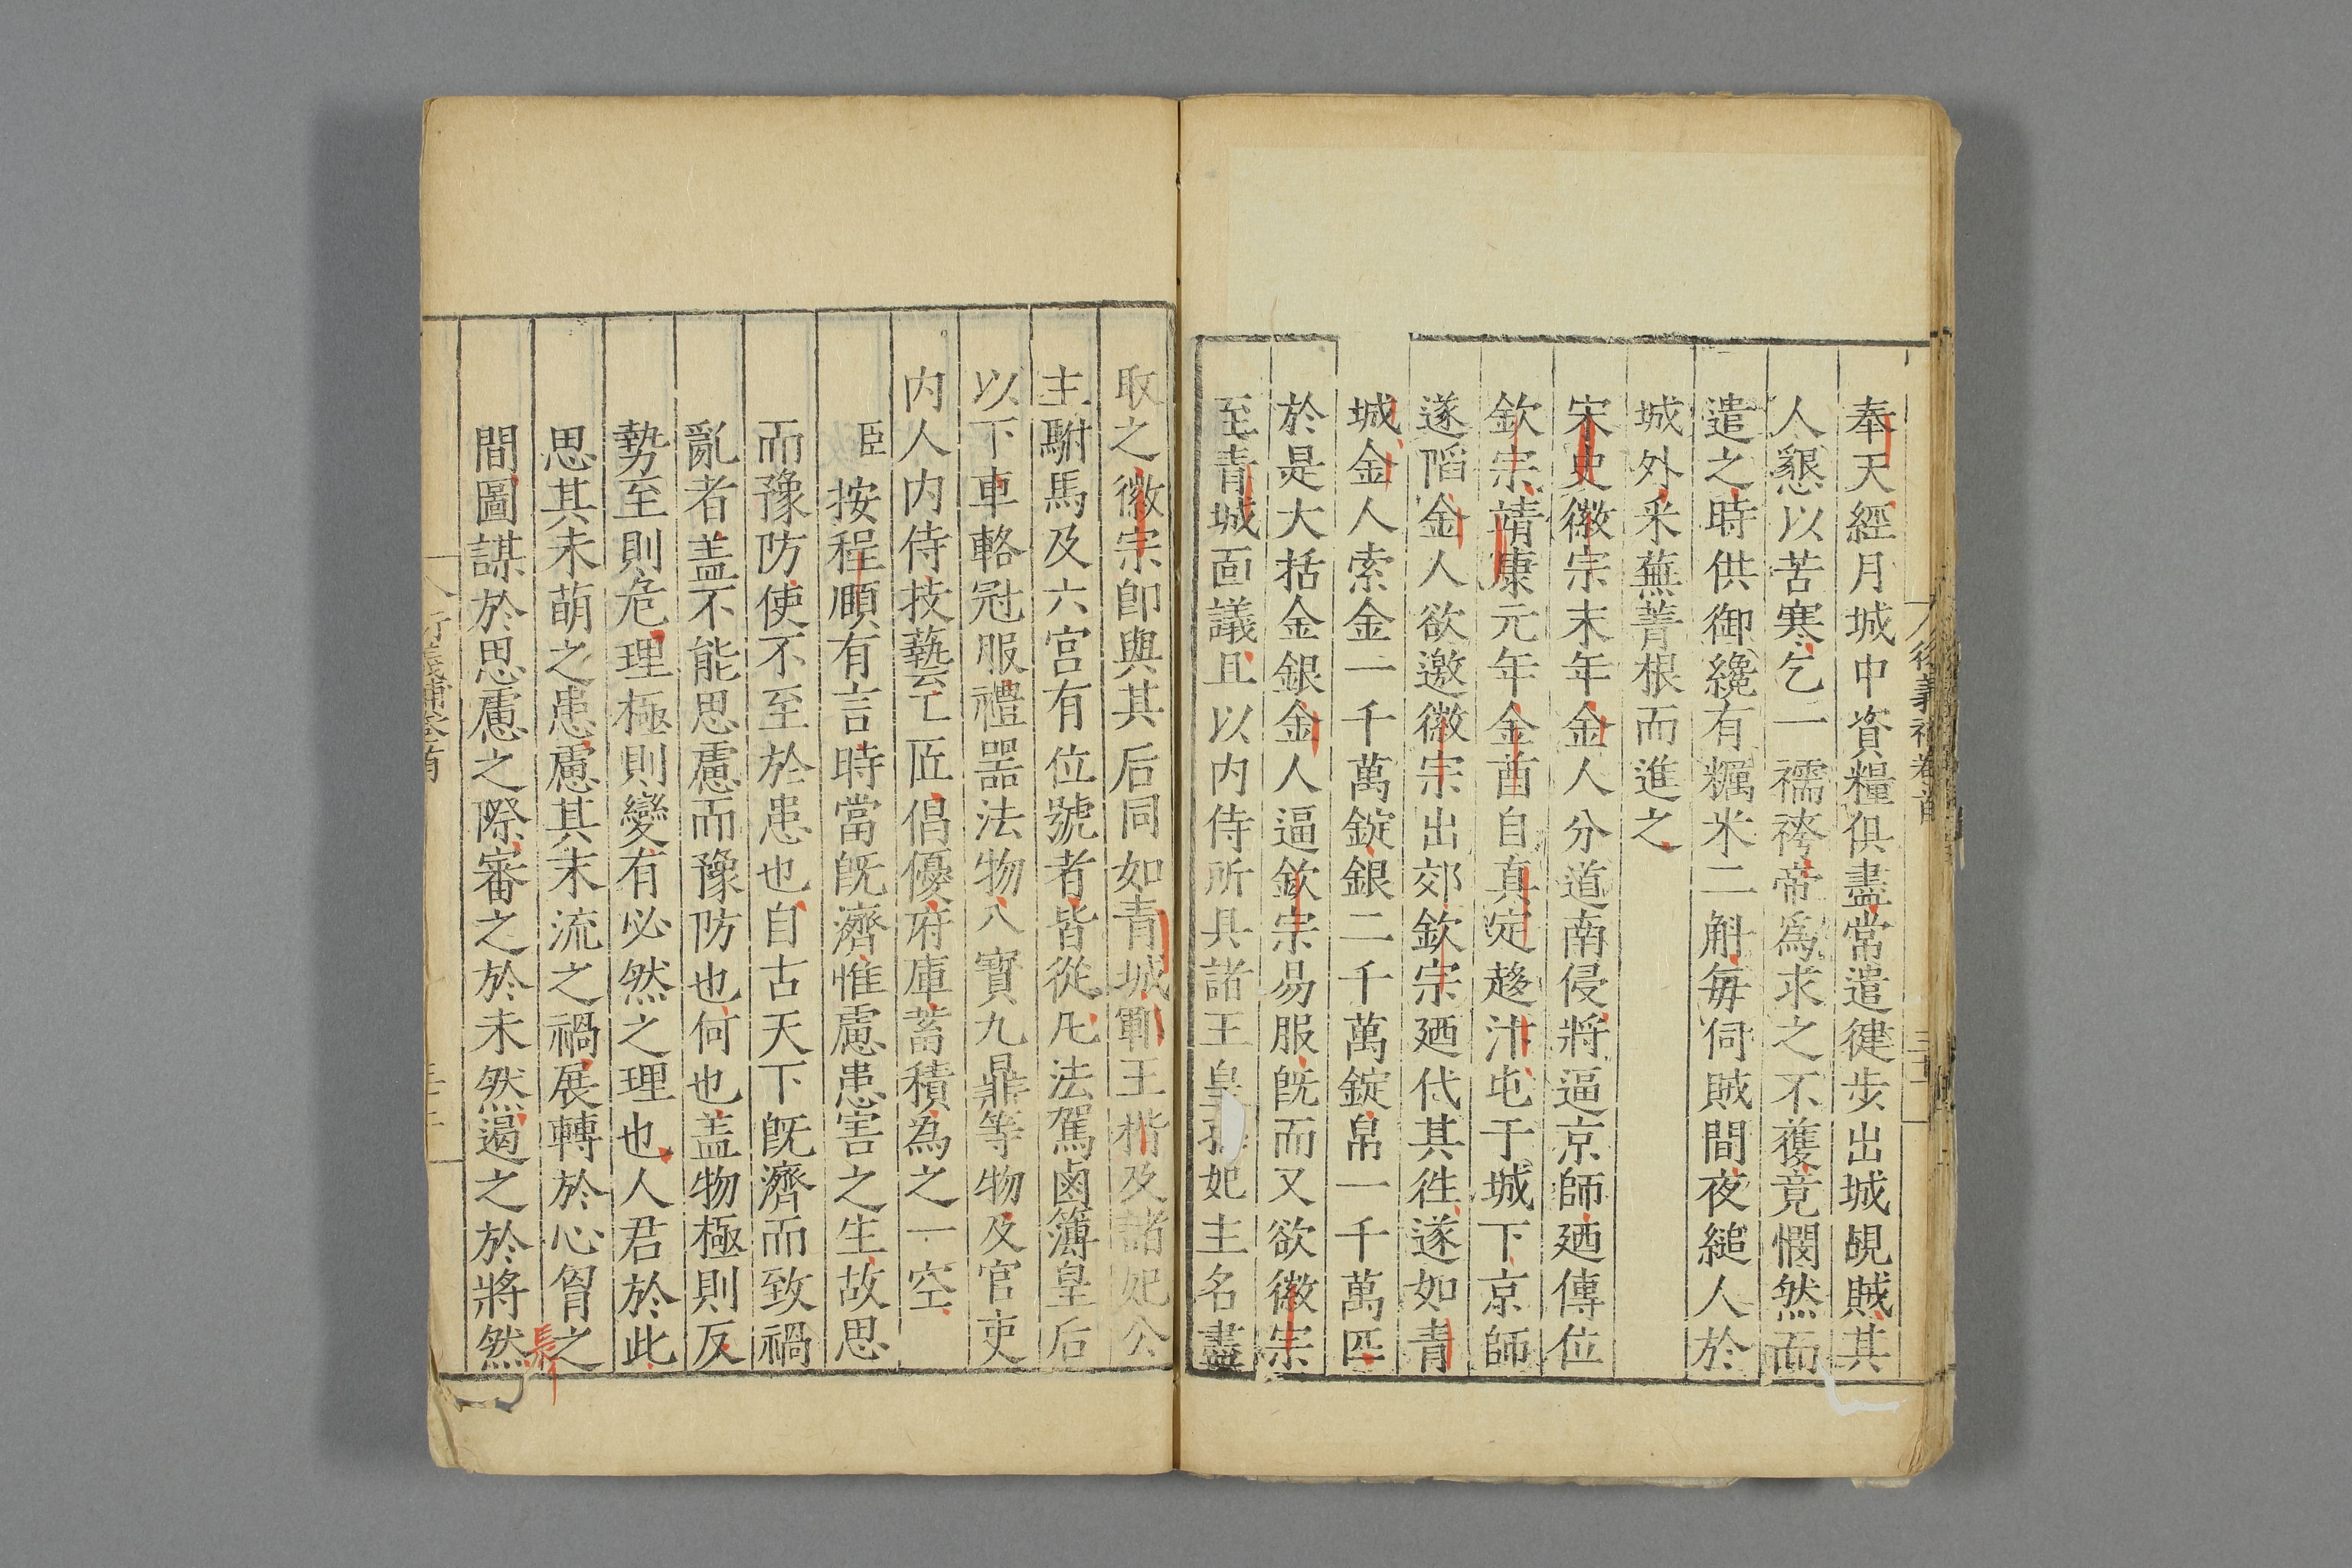 奉天經月城中資糧俱盡常遣健步出城覘賊其
人懇以苦寒乞一襦袴帝為求之不獲竟憫然而
遣之時供御纔有糲米二斛每伺賊間夜縋人於
城外采蕪菁根而進之
宋史徽宗末年金人分道南侵將逼京師廼傳位
欽宗靖康元年金酋自真定趍汴屯于城下京師
遂陷金人欲邀徽宗出郊欽宗廼代其徃遂如青
城金人索金一千萬錠銀二千萬錠帛一千萬匹
於是大括金銀金人逼欽宗易服旣而又欲徽宗
至青城面議且以内侍所具諸王皇孫妃主名盡
取之徽宗卽與其后同如青城鄆王楷及諸妃公
主駙馬及六宮有位號者皆從凡法駕鹵簿皇后
以下車輅冠服禮噐法物八寳九鼎等物及官吏
内人内侍技藝工匠倡優府庫蓄積為之一空
臣按程頤有言時當旣濟惟慮患害之生故思
而豫防使不至於患也自古天下旣濟而致禍
亂者盖不能思慮而豫防也何也盖物極則反
勢至則危理極則變有必然之理也人君於此
思其未萌之患慮其末流之禍展轉於心胷之
間圖謀於思慮之際審之於未然遏之於將然